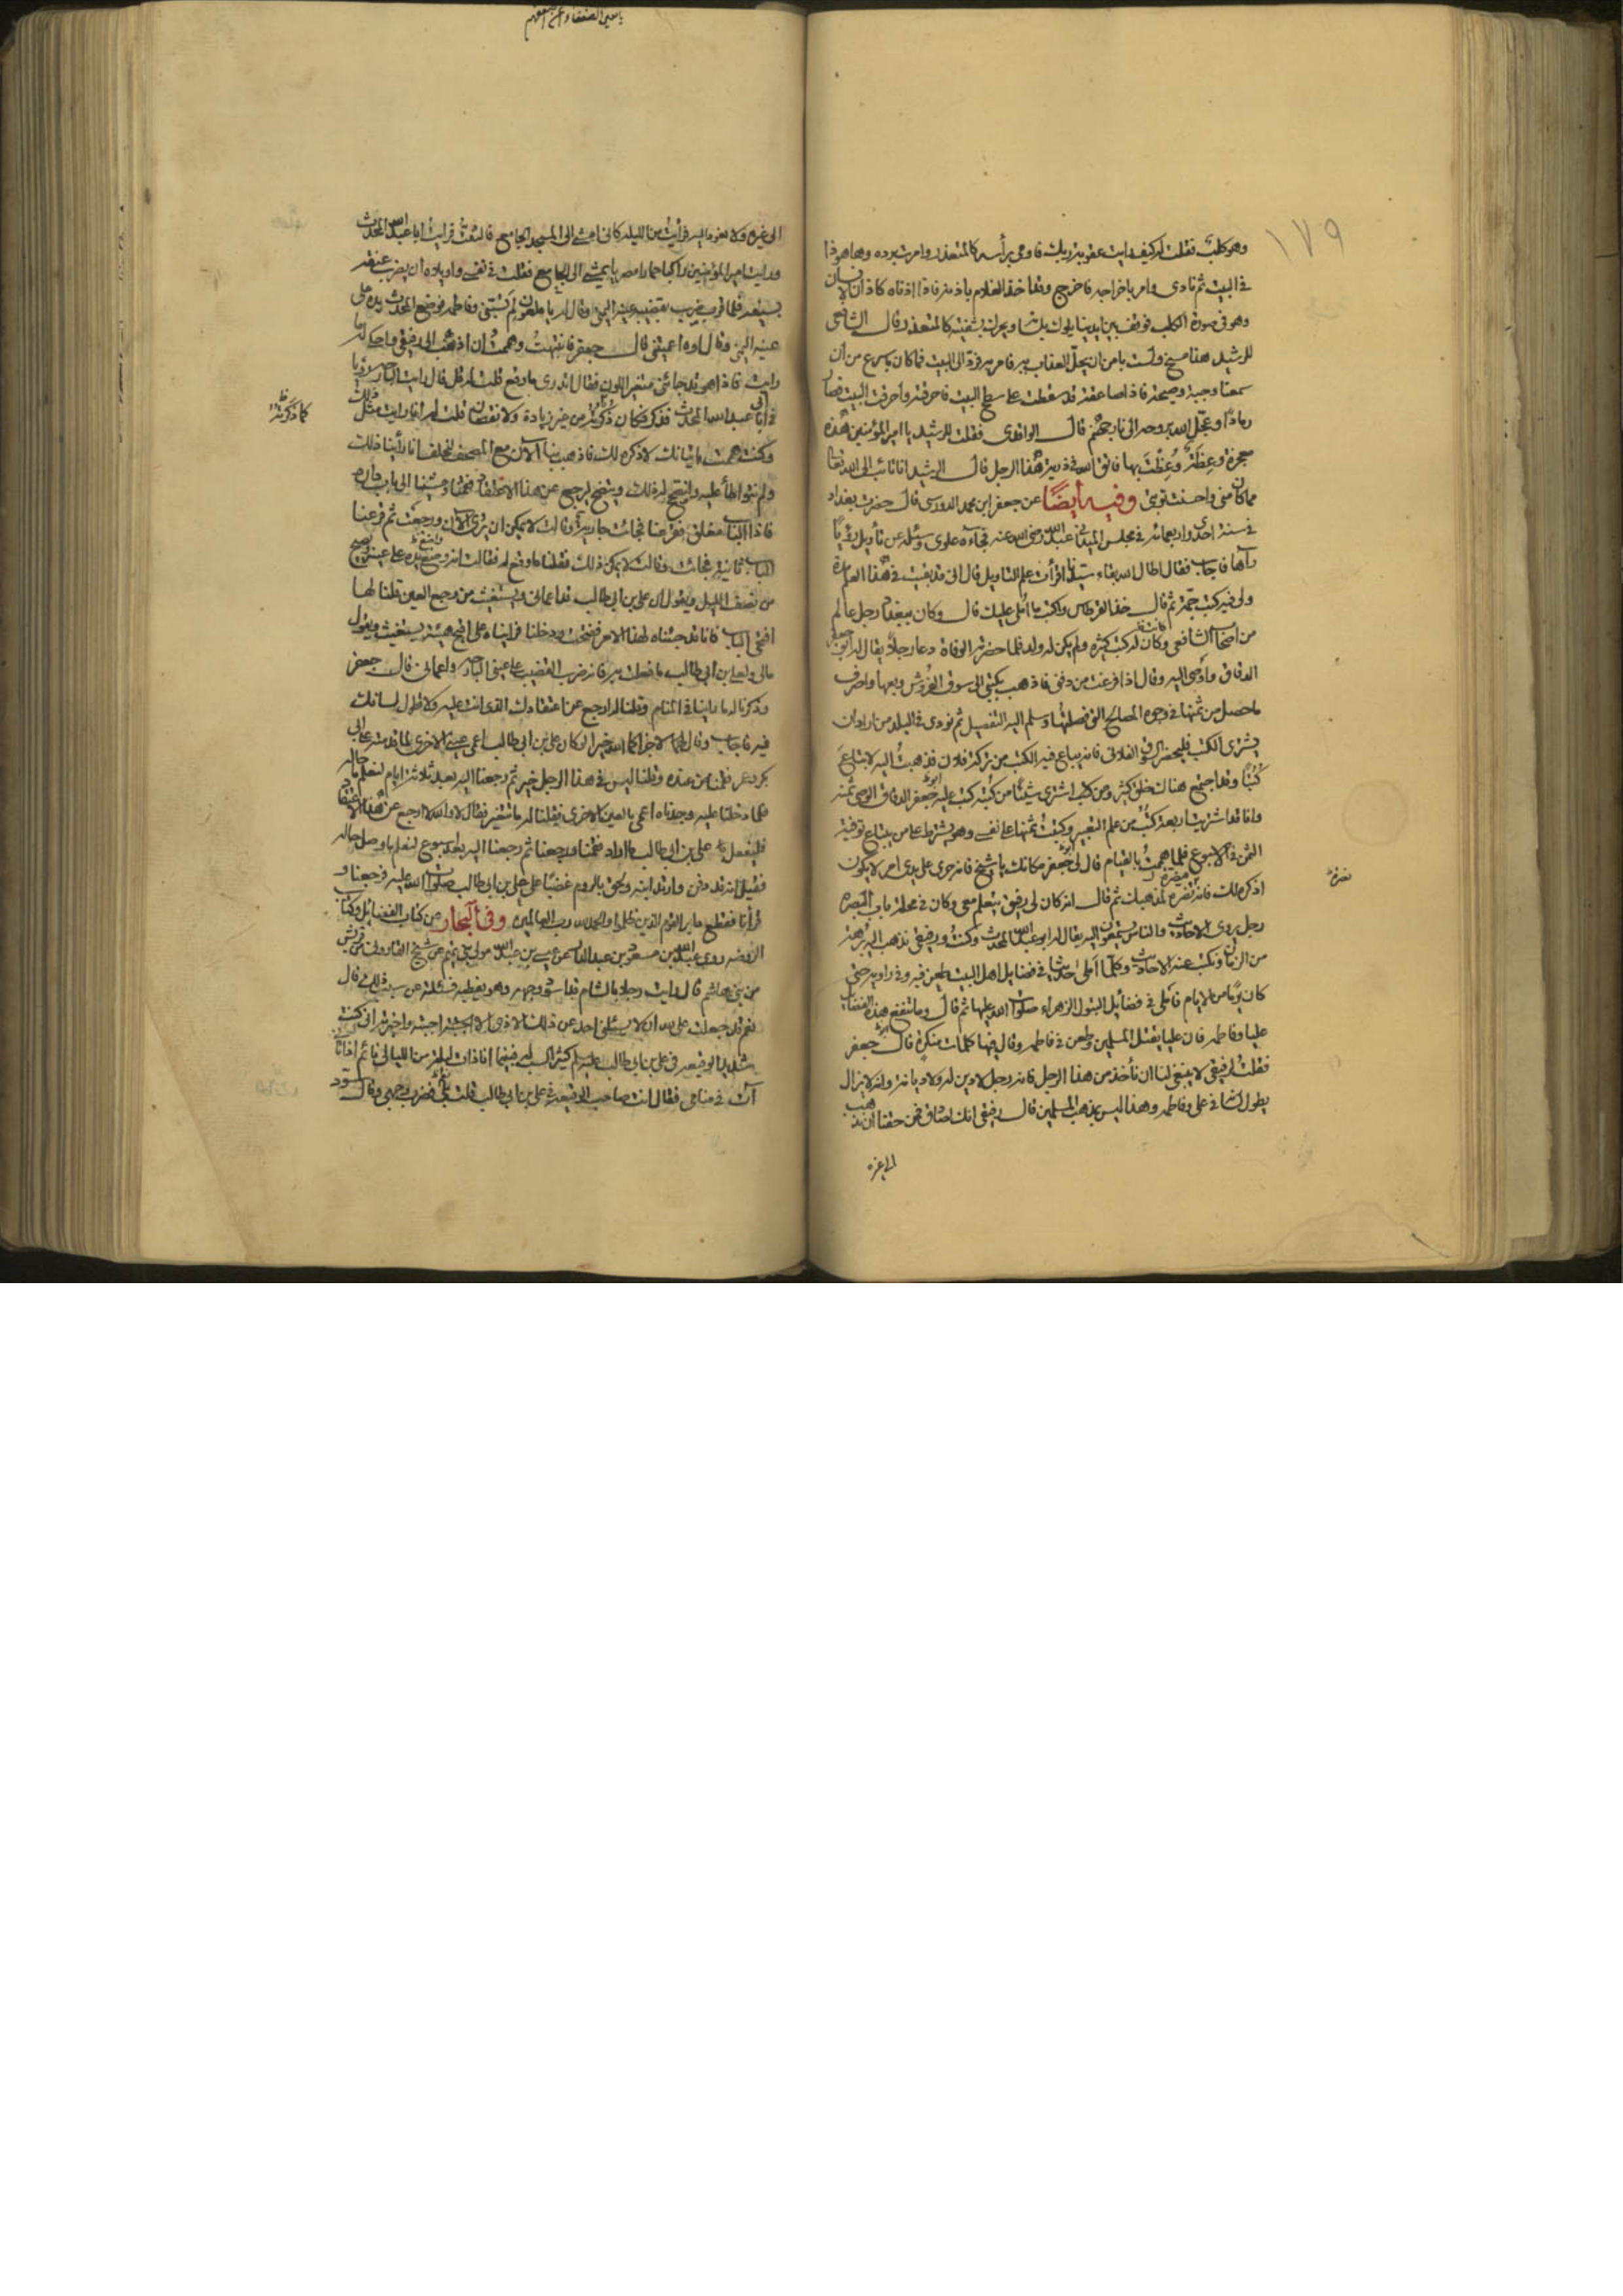 ١٧٩
وهو كلب فقلت له كيف رايت عقوبة ربك فاومى برأسه كالمتعذر وامرت برده وها هو ذا
في البيت ثم نادى وامر باخراجه فاخرج وقد اخذ الغلام باذنه فاذا اذناه كاذان الانسان
وهو في صورة الكلب فوقف بين ايدينا يلوك بلسانه ويحرك بشفتيه كالمتعذر فقال الشافعي
للرشيد هذا مسخ ولست بامن ان يحل العذاب به فامر به فرد الى البيت فما كان باسرع من ان
سمعنا وجبة وصيحة فاذا صاعقة قد سقطت على سطح البيت فاحرقته واحرقت البيت فصار
رمادا وعجل الله بروحه الى نار جهنم قال الواقدي فقلت للرشيد يا امير المؤمنين هذه
معجزة وعظة وعظت بها فاتق الله في ذرية هذا الرجل قال الرشيد انا تائب الى الله تعالى
مما كان مني واحسنت توبتي وفيه ايضا عن جعفر ابن محمد الدوريسي قال حضرت بغداد
في سنة احدى واربعمائة في مجلس المفيد ابي عبد الله رضي الله عنه فجاءه علوي وسئله عن تأويل رؤيا
رآها فاجاب فقال اطال الله بقاء سيدنا اقرأت علم التاويل قال اني قد بقيت في هذا العلم مدة
ولي فيه كتب جمة ثم قال خذ القرطاس واكتب ما املي عليك قال وكان ببغداد رجل عالم
من اصحاب الشافعي وكان له كتب كثيرة ولم يكن له ولد فلما حضرته الوفاة دعا رجلا يقال له ابو جعفر
الدقاق واوصى اليه وقال اذا فرغت من دفني فاذهب بكتبي الى سوق الفروش وبعها واصرف
ما حصل من ثمنها في وجوه المصالح التي فصلتها وسلم اليه التفصيل ثم نودي في البلد من اراد ان
يشتري الكتب فليحضر السوق الفلاني فانه يباع فيه الكتب من تركة فلان فذهبت اليه لابتاع
كتبا وقد اجتمع هناك خلق كثير ومن كتب اشترى شيئا من كتبه كتب عليه ابو جعفر الدقاق الوصي ثمنه
وانا قد اشتريت اربعة كتب من علم التعبير وكتبت ثمنها على نفسي وهو يشترط على من يبتاع توفية
الثمن في الاسبوع فلما هممت بالقيام قال لي جعفر مكانك يا شيخ فانه جرى على يدي امر لا
اذكره لك فانه نصرة لمذهبك ثم قال انه كان لي رفيق يتعلم معي وكان في محلة باب البصرة
رجل يروي الاحاديث والناس يسمعون اليه يقال له ابو عبد الله المحدث وكنت ورفيقي نذهب اليه برهة
من الزمان ونكتب عنه الاحاديث وكلما املى حديثا في فضايل اهل البيت طعن فيه وفي راويه حتى
كان يوما من الايام فاملى في فضايل البتول الزهراء صلوات الله عليها ثم قال وما تنفع هذه الفضايل
عليا وفاطمه فان عليا يقتل المسلمين وطعن في فاطمه وقال فيها كلمات منكرة قال جعفر
فقلت لرفيقي لا ينبغي لنا ان نأخذ من هذا الرجل فانه رجل لا دين له ولا ديانة وانه لا يزال
يطول لسانه في علي وفاطمه وهذا ليس بمذهب المسلمين قال رفيقي انك لصادق فمن حقنا ان نذهب
الى غيره
الى غيره ولا نعود اليه فرأيت من الليلة كاني امشي الى المسجد الجامع فالتفت فرايت ابا عبد الله المحدث
ورايت امير المؤمنين راكبا حمارا مصريا يمشي الى الجامع فقلت في نفسي واويلاه ان يضرب عنقه
بسيفه فلما قرب ضرب بقضيبه عينه اليمنى وقال له يا ملعون لم تسبني وفاطمه فوضع المحدث يده على
عينه اليمنى وقال اوه اعميتني قال جعفر فانتبهت وهممت ان اذهب الى رفيقي واحكي له ما
رايت فاذا هو قد جائني متغير اللون فقال اتدري ما وقع قلت له قل قال رايت البارحة رؤيا
في ابي عبد الله المحدث فذكر فكان كما ذكرته من غير زيادة ولا نقصان فقلت له انا رايت مثل ذلك
وكنت هممت باتيانك لاذكره لك فاذهب بنا الان مع المصحف لنحلف انا رأينا ذلك
ولم نتواطأ عليه وننصح له ليرجع عن هذا الاعتقاد فقمنا ومشينا الى باب داره
فاذا الباب مغلق فقرعنا فجائت جارية وقالت لا يمكن ان يرى الان ورجعت ثم قرعنا
الباب ثانية فجائت وقالت لا يمكن ذلك فقلنا ما وقع له فقالت انه وضع يده على عينه ويصيح
من نصف الليل ويقول ان علي بن ابي طالب قد اعماني ويستغيث من وجع العين قلنا لها
افتحي الباب فانا قد جئناه لهذا الامر ففتحت ودخلنا فرايناه على اقبح هيئة يستغيث ويقول
ما لي ولعلي بن ابي طالب ما فعلت به فانه ضرب القضيب على عيني البارحة واعماني قال جعفر
وذكرنا له ما راينا في المنام وقلنا له ارجع عن اعتقادك الذي انت عليه ولا تطول لسانك
فيه فاجاب وقال لا جزاكما الله خيرا لو كان علي بن ابي طالب اعمى عيني الاخرى لما قدمته على ابي
بكر وعمر فقمنا من عنده وقلنا ليس في هذا الرجل خير ثم رجعنا اليه بعد ثلاثة ايام لنعلم ما حاله
فلما دخلنا عليه وجدناه اعمى بالعين الاخرى فقلنا له ما تتغير فقال لا والله لا ارجع عن هذا الاعتقاد
فليفعل علي بن ابي طالب ما اراد فقمنا ورجعنا ثم رجعنا اليه بعد اسبوع لنعلم ما وصل حاله
فقيل انه قد دفن وارتد ابنه ولحق بالروم غضبا على علي بن ابي طالب صلوات الله عليه فرجعنا و
قرأنا فقطع دابر القوم الذين ظلموا والحمد لله رب العالمين وفي البحار من كتاب الفضايل وكتاب
الروضه روى عبد الله بن مسعود بن عبد الدار عن عيسى بن عبد الله مولى بني تميم عن شيخ من قريش
من بني هاشم قال رايت رجلا بالشام قد اسود وجهه وهو يغطيه فسئلته عن سبب ذلك قال
نعم قد جعلت على الله ان لا يسئلني احد عن ذلك الا اجبته واخبرته اني كنت
شديد الوقيعة في علي بن ابي طالب عليه السلم كثير السب له فبينما انا ذات ليلة من الليالي نائم اذ اتاني
آت في منامي فقال انت صاحب الوقيعة في علي بن ابي طالب قلت بلى فضرب وجهي وقال سود
كما ذكرته